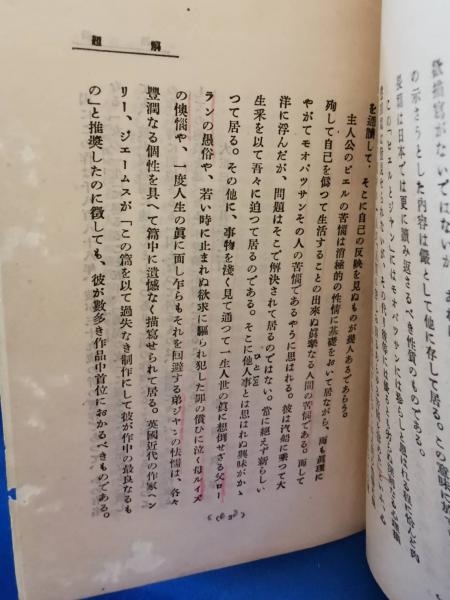 歓描寫がないではないが、
の示さうとした内容は儼として他に存して居る。この意味に於て
長篇は日本では更に讀み返さるべき性質のものである。
この「ピエルとジャン」にはモオパッサンには珍らしと思はれる程に
を通讀して、そこに自己の反映を見ぬものが幾人あるであらう。
主人公のピエルの苦惱は消極的性情に基礎をおいて居ながら、而も眞理に
殉じて自己を僞つて生活することの出來ぬ眞摯なる人間の苦惱である。而して
やがてモオパッサンその人の苦惱であるやうに思はれる。彼は汽船に乘つて大
洋に浮んだが、問題はそこで解決されて居るのではない。常に絶えず新らしい
生釆を以て吾々に迫つて居るのである。そこに他人事とは思はれぬ興味がかゝ
ひとごと
つて居る。その他に、事物を淺く見て通つて一生人世の眞に想倒せざる父ロー
ランの愚俗や、若い時に止まれぬ欲求に驅られ犯した罪の償ひに泣く母ルイズ
の懊惱や、一度人生の眞に面し乍らもそれを囘避する弟ジャンの怯懦は、各々
豐潤なる個性を具へて篇中に遺憾なく描寫せられて居る。英國近代の作家ヘン
リー、ジェームスが「この篇を以て過失なき制作にして彼が作中の最良なるも
の」と推奬したのに徴しても、彼が數多き作品中首位におかるべきものである。
解題